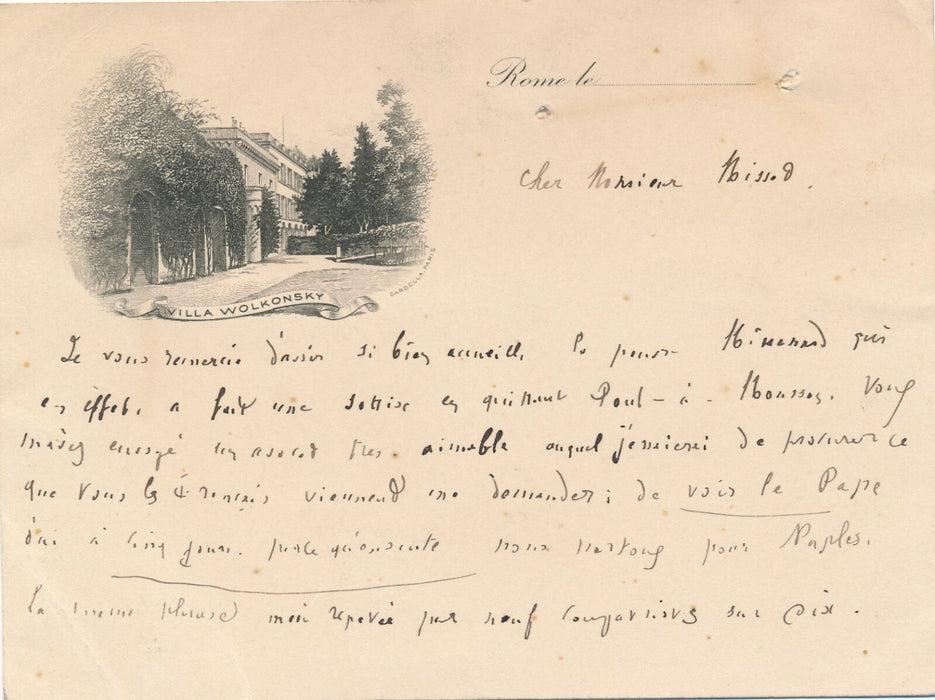 Rome le
Cher Monsieur Missod.
VILLA WOLKONSKY
GARDELLA, PARIS
Je vous remercie d'avoir si bien accueilli le pauvre qui
en effet, a fait une sottise en quittant Pont-à-Mousson. Vous
m'avez envoyé un avocat très aimable auquel j'essaierai de procurer ce
que tous les Français viennent me demander; de voir le Pape
d'ici à cinq jours. parce qu'ensuite nous partons pour Naples.
La même phrase m'est répétée par neuf compatriotes sur dix.